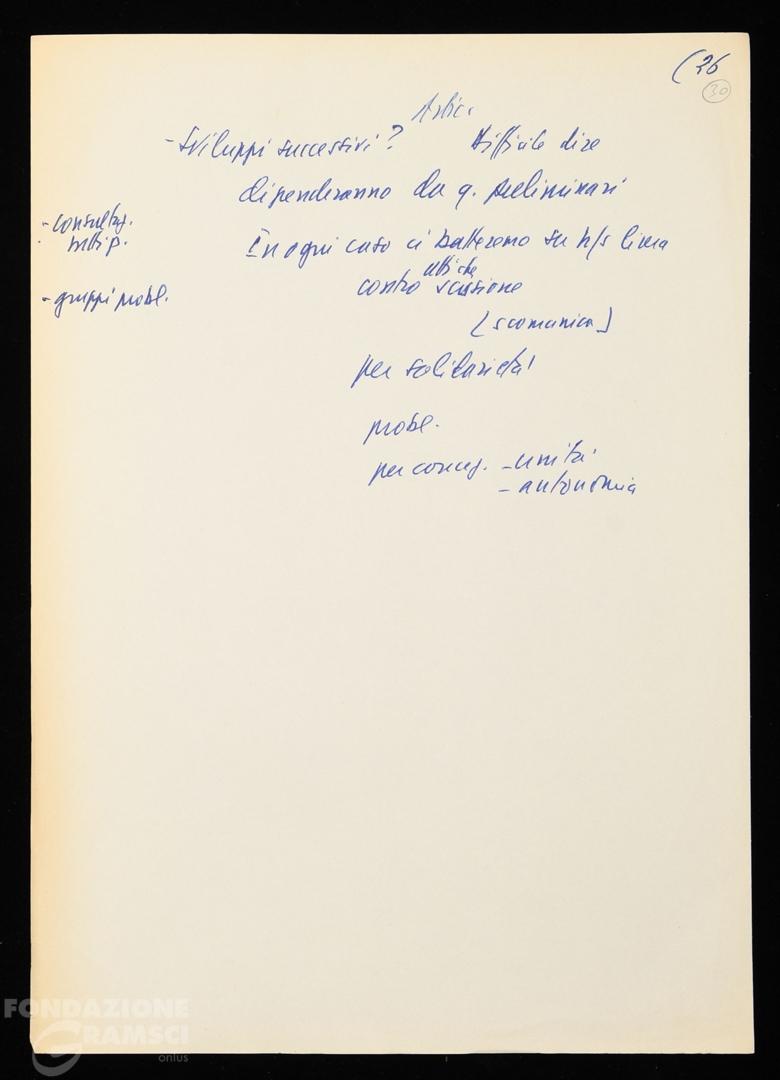 (26
30
- Sviluppi successivi? Difficile dire
dipenderanno da q. preliminari
- consultaz.
In ogni caso ci batteremo su n/s linea
contro scissione
- gruppi probl.
[scomunica]
per solidarietà
probl.
per concez. - unità
- autonomia
FONDAZIONE
GRAMSCI
onlus